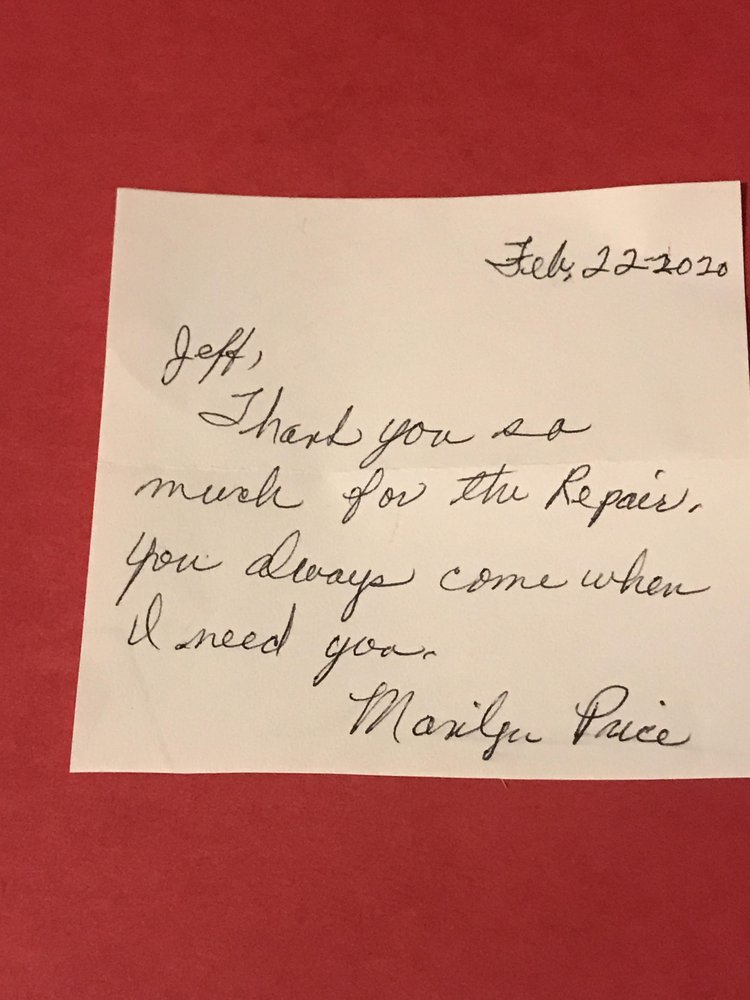 Feb, 22-2020
Jeff,
Thank you so
much for the Repair.
you always come when
I need you.
Marilyn Price